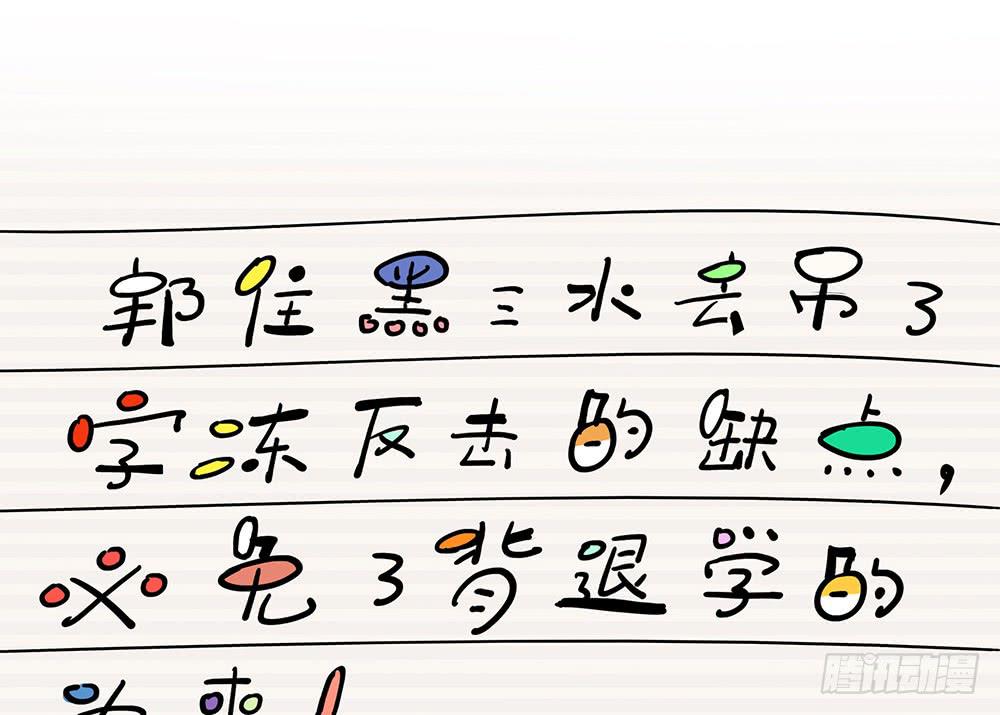 郭住黑三水去吊了
字冻反去的缺点,
必免了背退学的
腾讯动漫